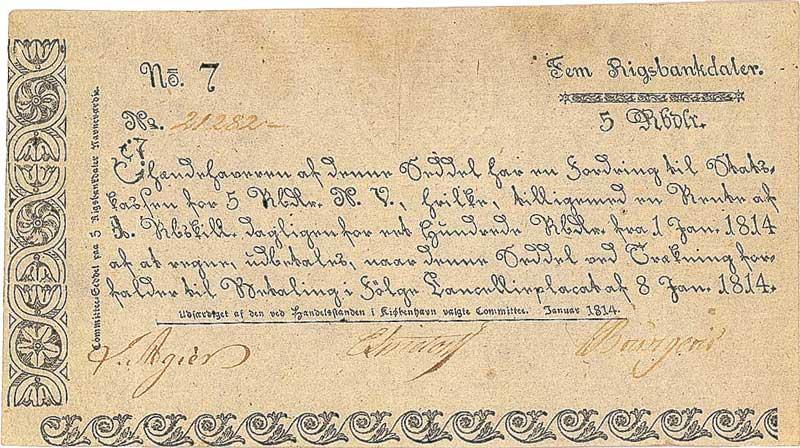 No. 7
Fem Rigsbankdaler.
No. 21282
5 Rbdlr.
Ihændehaveren af denne Seddel har en Fordring til Stats-
kassen for 5 Rbdlr. N. V., hvilke, tilligemed en Rente af
1. Rbskill. dagligen for eet Hundrede Rbdlr. fra 1 Jan. 1814
af at regne, udbetales, naar denne Seddel ved Trækning for-
falder til Betaling i Følge Cancellieplacat af 8 Jan. 1814.
Udfærdiget af den ved Handelsstanden i Kiøbenhavn valgte Committee. Januar 1814.
Committee-Seddel paa 5 Rigsbankdaler Navneværdie.
Bourgeois